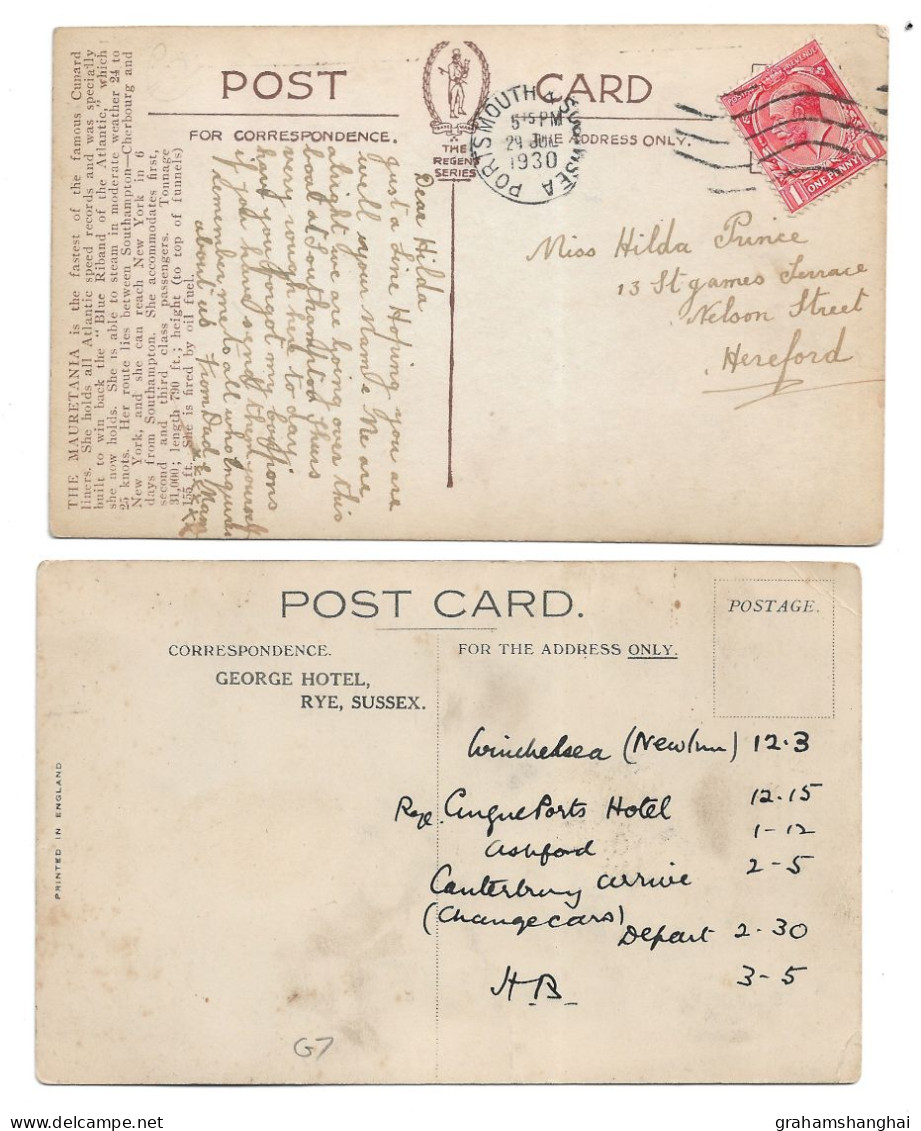 POST CARD
FOR CORRESPONDENCE.
THE ADDRESS ONLY.
THE
REGENT
SERIES
PORTSMOUTH & SOUTHSEA
5 15 PM
29 JUL
1930
POSTAGE REVENUE
1 ONE PENNY 1
THE MAURETANIA is the fastest of the famous Cunard
liners. She holds all Atlantic speed records and was specially
built to win back the "Blue Riband of the Atlantic," which
she now holds. She is able to steam in moderate weather 24 to
25 knots. Her route lies between Southampton—Cherbourg and
New York, and she can reach New York in 6
days from Southampton. She accommodates first,
second and third class passengers. Tonnage
31,000; length 790 ft.; height (to top of funnels)
155 ft. She is fired by oil fuel.
Dear Hilda
Just a Line Hoping you are
well & your stambe We are
alright we are going over this
boat at Southampton Thurs
very rough here to day.
have you forgot my
if you have send them yourself
remember me to all who enquires
about us From Dad & Mam
xxxxxx
Miss Hilda Prince
13 St games Terrace
Nelson Street
Hereford
POST CARD.
POSTAGE.
CORRESPONDENCE.
FOR THE ADDRESS ONLY.
GEORGE HOTEL,
RYE, SUSSEX.
PRINTED IN ENGLAND
Winchelsea (New Inn) 12.3
Rye. Cinque Ports Hotel 12.15
Ashford 1-12
Canterbury arrive 2-5
(Change cars)
Depart 2.30
H.B. 3-5
G7
grahamshanghai